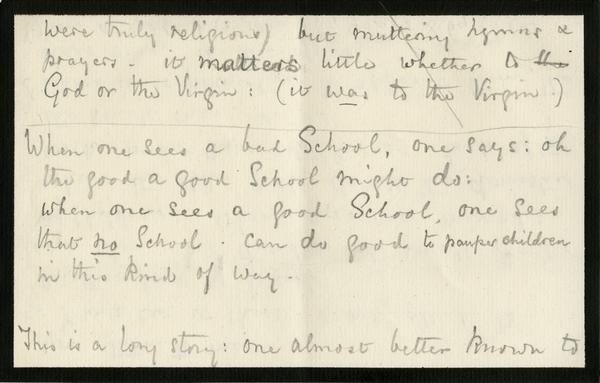 were truly religious) but muttering hymns &
prayers - it matters little whether to
God or the Virgin: (it was to the Virgin.)
When one sees a bad School, one says: oh
the good a good School might do:
when one sees a good School, one sees
that no School . can do good to pauper children
in this kind of way.
This is a long story: one almost better known to